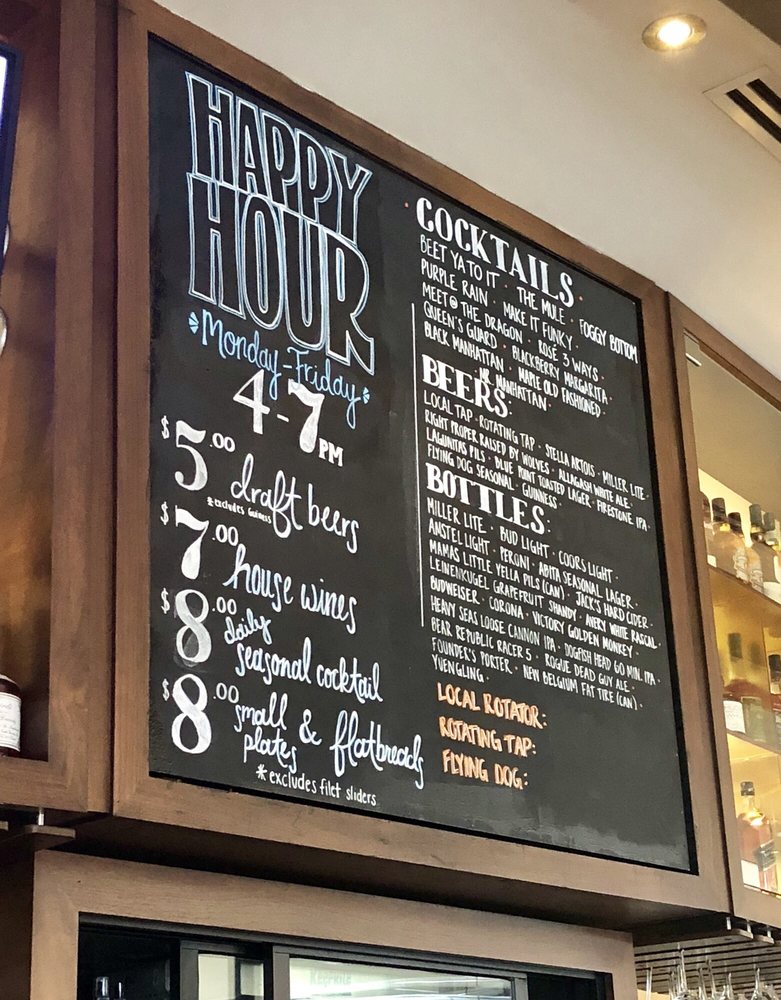 HAPPY
HOUR
Monday-Friday
4-7PM
$5.00 draft beers
*excludes Guinness
$7.00 house wines
$8.00 daily
seasonal cocktail
$8.00 small & flatbreads
plates
*excludes filet sliders
· COCKTAILS ·
BEET YA TO IT · THE MULE · FOGGY BOTTOM
PURPLE RAIN · MAKE IT FUNKY ·
MEET @ THE DRAGON · ROSÉ 3 WAYS ·
QUEEN'S GUARD · BLACKBERRY MARGARITA ·
BLACK MANHATTAN · MAPLE OLD FASHIONED ·
MANHATTAN ·
BEERS:
LOCAL TAP · ROTATING TAP · STELLA ARTOIS · MILLER LITE ·
RIGHT PROPER RAISED BY WOLVES · ALLAGASH WHITE ALE ·
LAGUNITAS PILS · BLUE POINT TOASTED LAGER · FIRESTONE IPA ·
FLYING DOG SEASONAL · GUINNESS ·
BOTTLES:
MILLER LITE · BUD LIGHT · COORS LIGHT ·
AMSTEL LIGHT · PERONI · ABITA SEASONAL LAGER ·
MAMAS LITTLE YELLA PILS (CAN) · JACK'S HARD CIDER ·
LEINENKUGEL GRAPEFRUIT SHANDY · AVERY WHITE RASCAL ·
BUDWEISER · CORONA · VICTORY GOLDEN MONKEY ·
HEAVY SEAS LOOSE CANNON IPA · DOGFISH HEAD 60 MIN. IPA ·
BEAR REPUBLIC RACER 5 · ROGUE DEAD GUY ALE ·
FOUNDER'S PORTER · NEW BELGIUM FAT TIRE (CAN) ·
YUENGLING ·
LOCAL ROTATOR:
ROTATING TAP:
FLYING DOG: